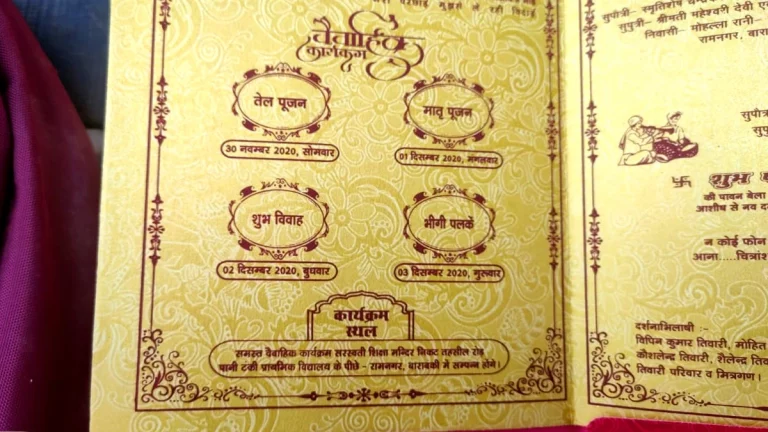 मुझसे ले रही विदाई
वैवाहिक
कार्यक्रम
तेल पूजन
30 नवम्बर 2020, सोमवार
मातृ पूजन
01 दिसम्बर 2020, मंगलवार
शुभ विवाह
02 दिसम्बर 2020, बुधवार
भीगी पलकें
03 दिसम्बर 2020, गुरूवार
कार्यक्रम
स्थल
समस्त वैबाहिक कार्यक्रम सरस्वती शिक्षा मन्दिर निकट तहसील रोड़
पानी टंकी प्राथमिक विद्यालय के पीछे - रामनगर, बाराबंकी में सम्पन्न होंगे।
सुपौत्री- स्मृतिशेष
सुपुत्री- श्रीमती महेश्वरी देवी
निवासी- मोहल्ला रानी-
रामनगर,
शुभ
की पावन बेला
आशीष से नव
न कोई फोन
आना.....
दर्शनाभिलाषी :-
विपिन कुमार तिवारी, मोहित
कौशलेन्द्र तिवारी, शैलेन्द्र
तिवारी परिवार व मित्रगण।